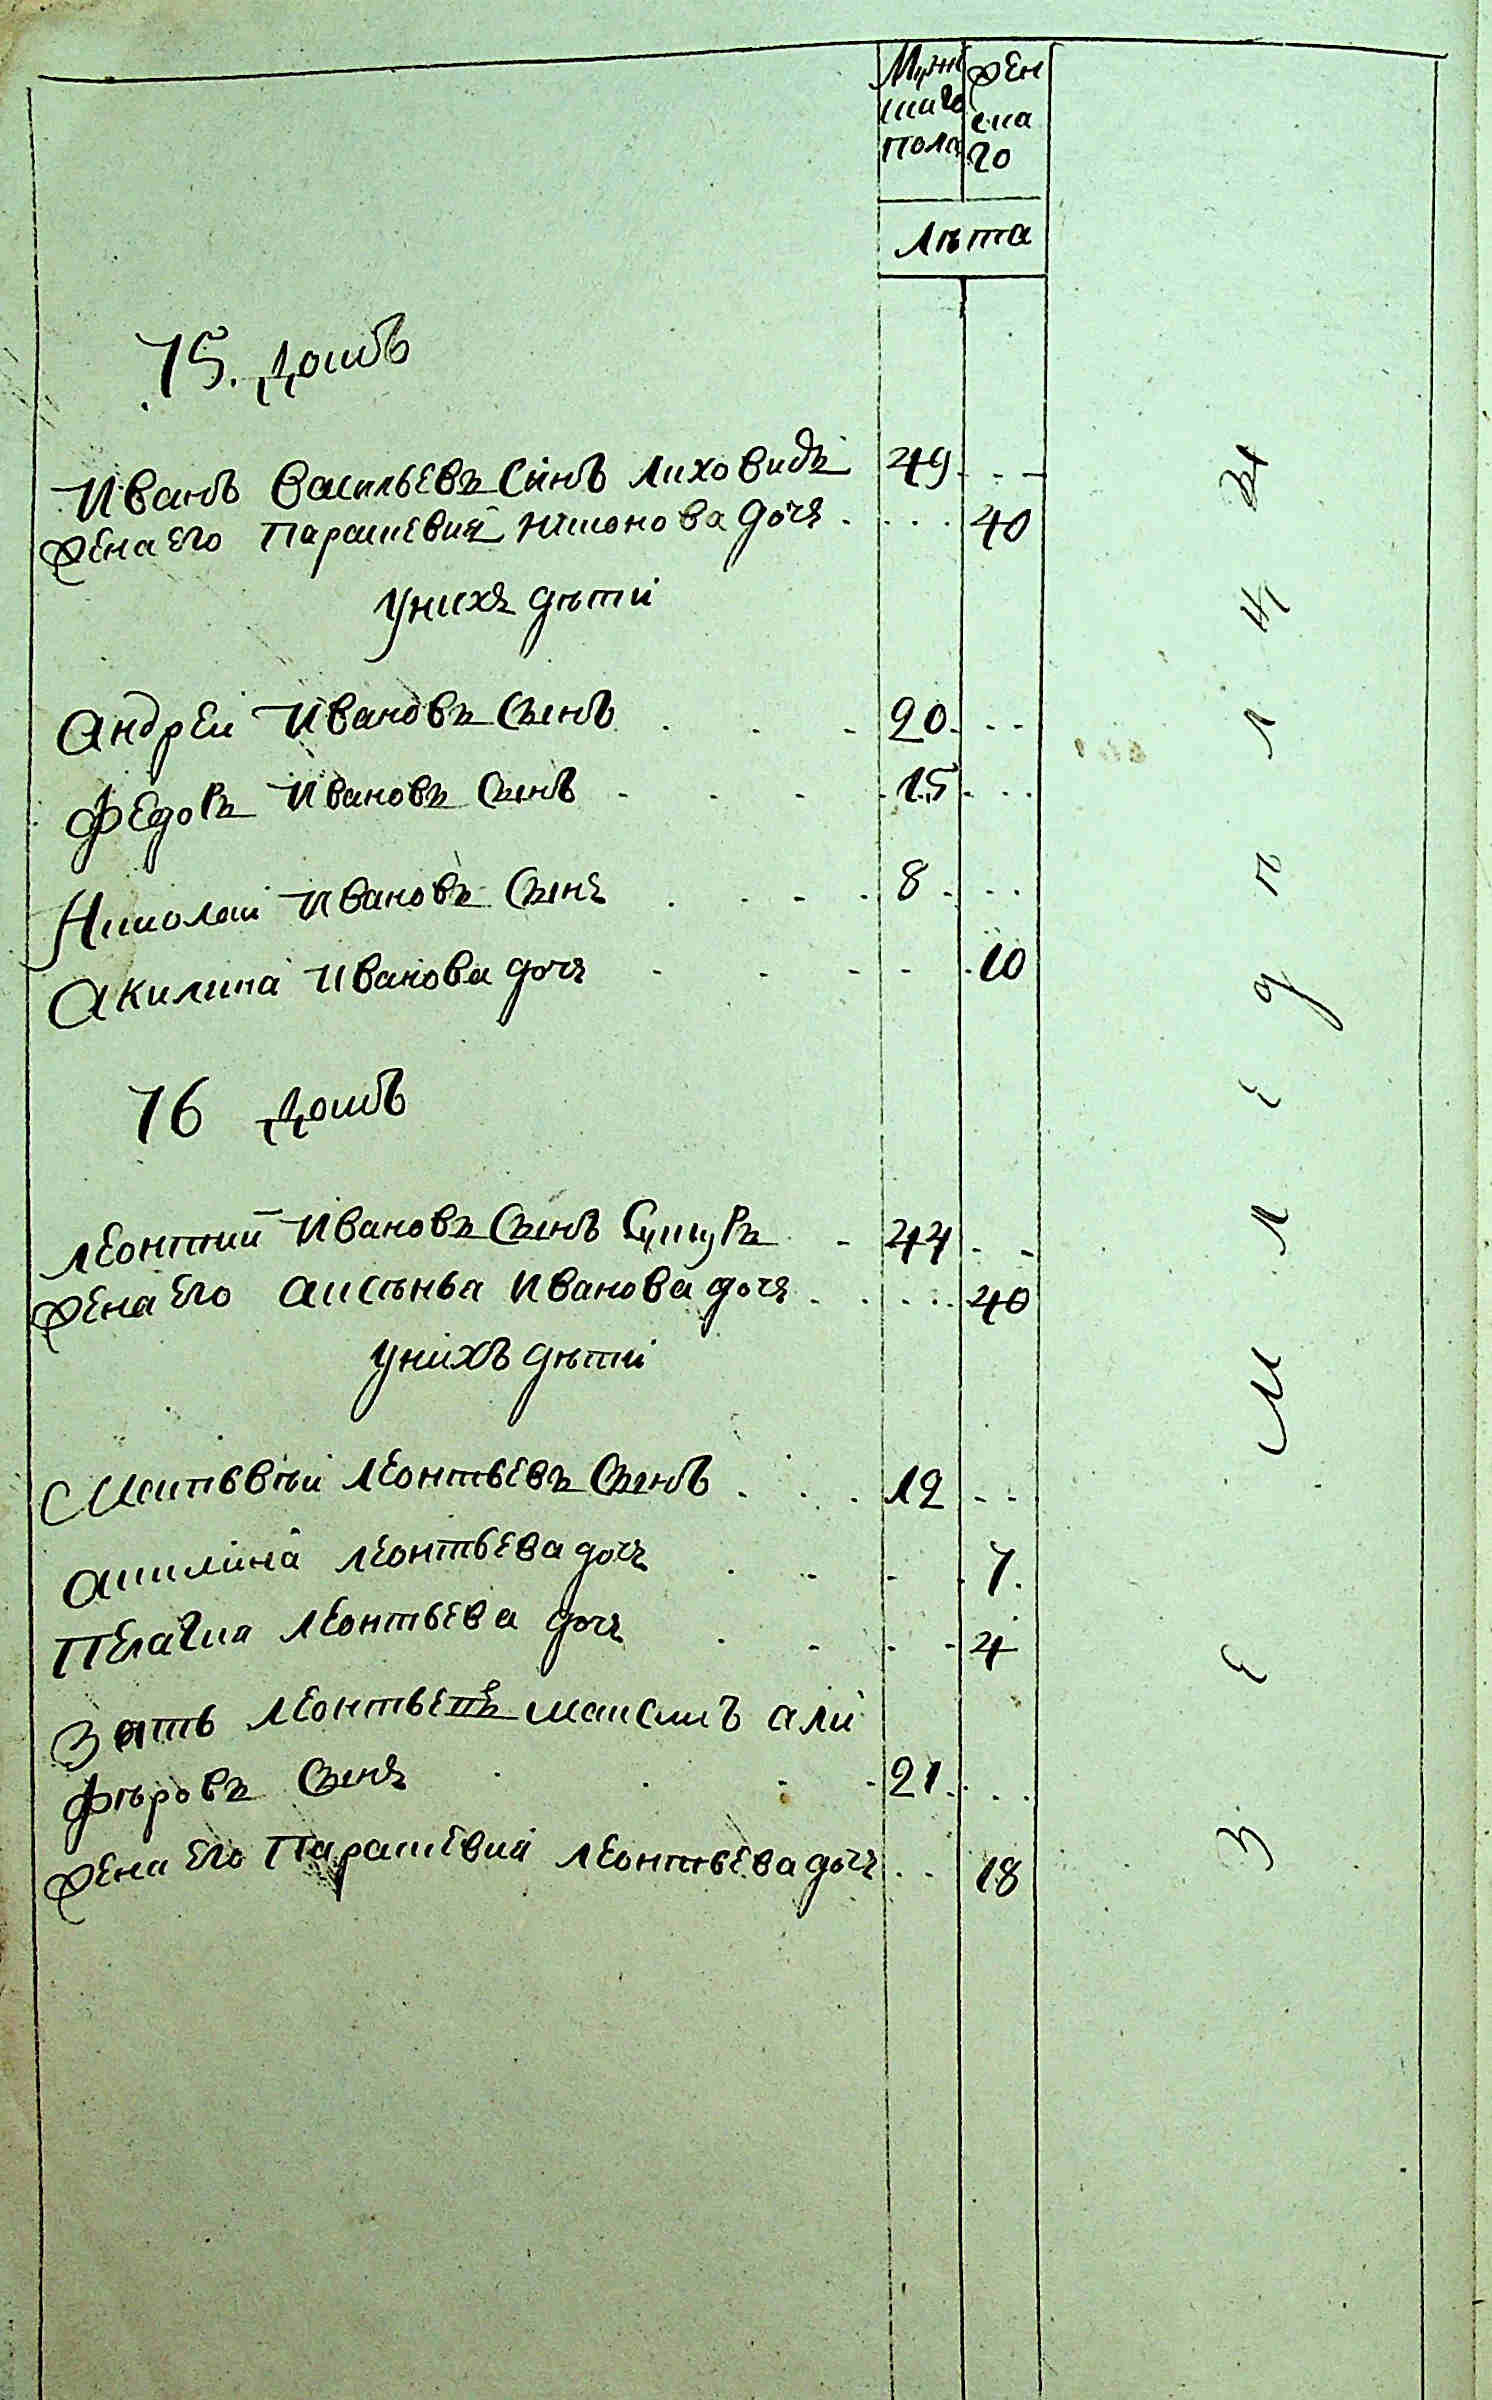 Муж Жен
скаго ска
пола го
Лѣта
75. домъ
Иванъ Васильевъ сынъ Лиховидъ 49
жена его Параскевия дочь 40
у нихъ дѣти
Андрей Ивановъ сынъ 20
Федоръ Ивановъ сынъ 15
Николай Ивановъ сынъ 8
Акилина Иванова дочь 10
76 домъ
Леонтий Ивановъ сынъ 44
жена его Аксѣнья Иванова дочь 40
у нихъ дѣти
Матьвѣй Леонтьевъ сынъ 12
Акилина Леонтьева дочь 7
Пелагия Леонтьева дочь 4
Зять Максимъ али
фѣровъ сынъ 21
жена его Параскевия Леонтьева дочь 18
Земледѣлцы